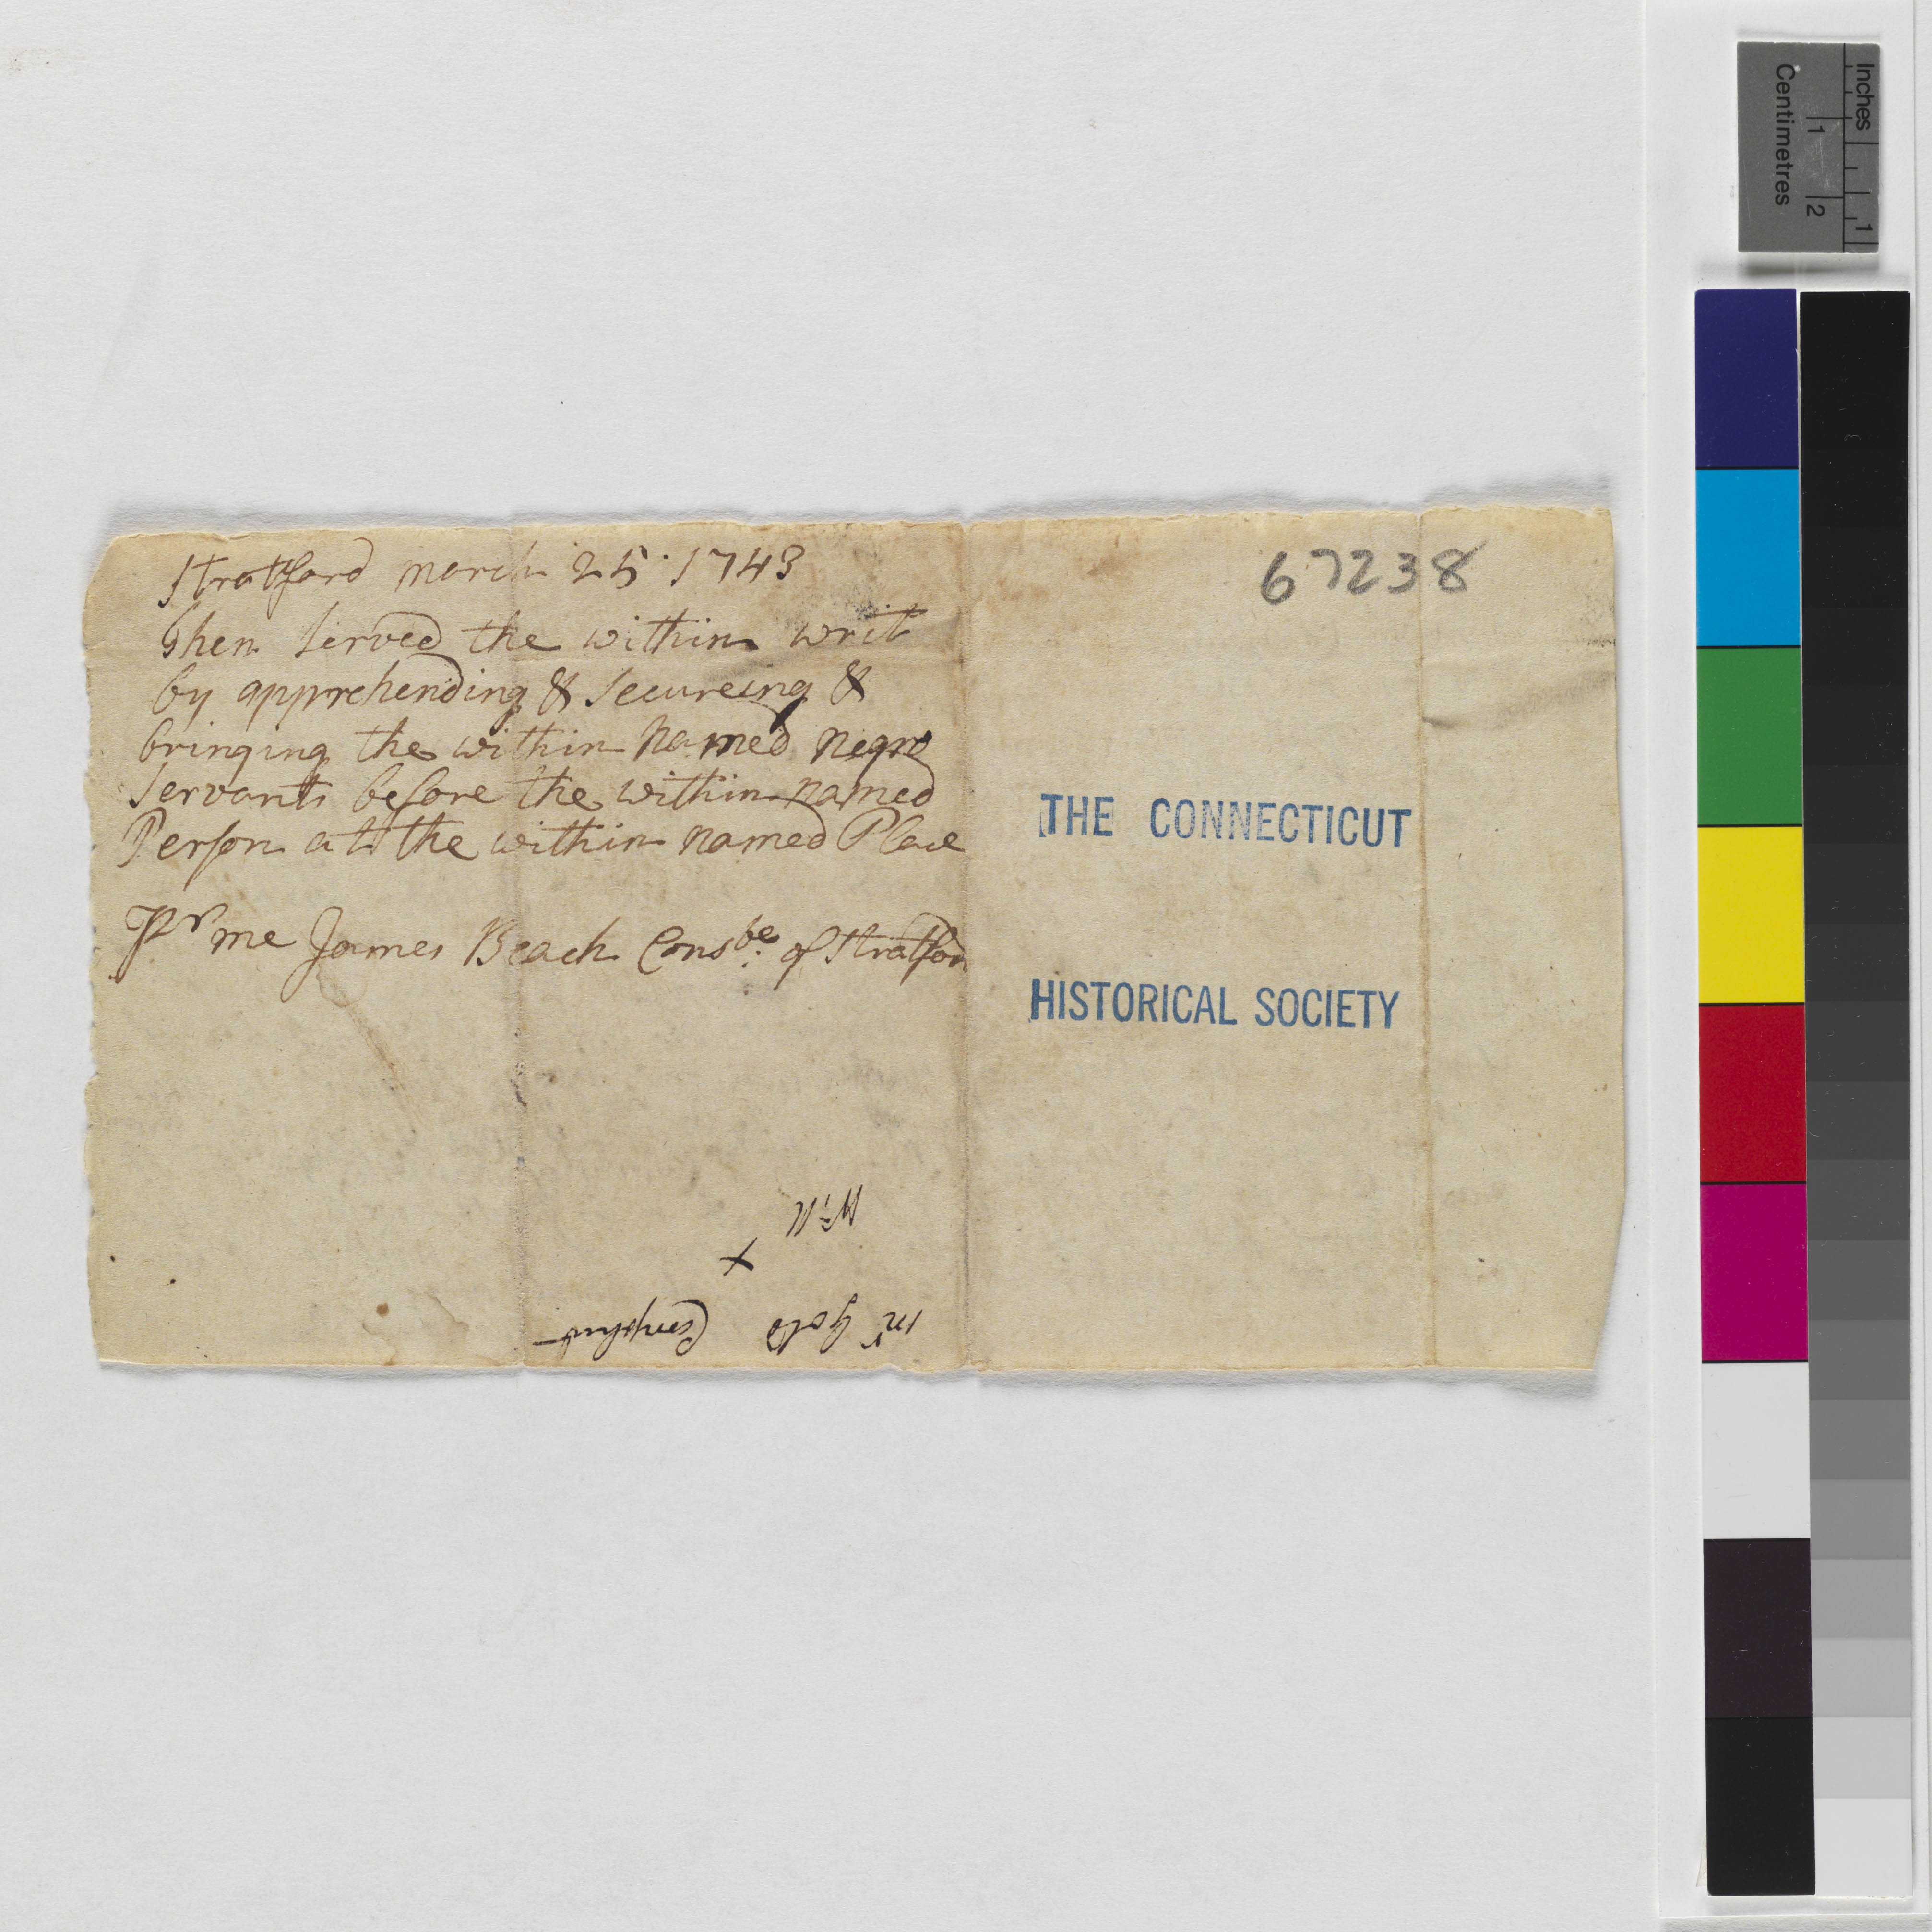 Stratford march 25. 1743
then served the within writ
by apprehending & secureing &
bringing the within named negro
servants before the within named
Person at the within named Place
Pr me James Beach Consbe: of Stratford
Will
X
mr Gold Complaint
67238
THE CONNECTICUT
HISTORICAL SOCIETY
Inches 1
1 2
Centimetres